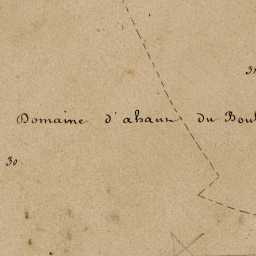 Domaine d'ahaux du Boul
30